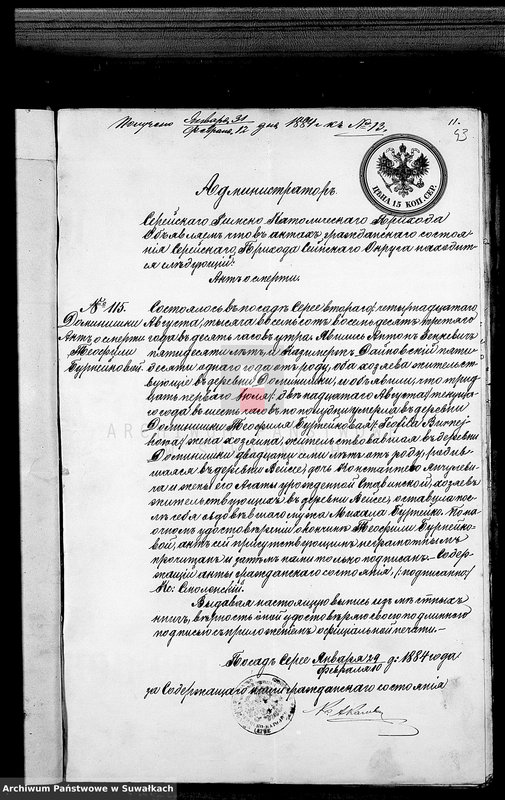 Получено Января 31 / Февраля 12 дня 1884 г. к № 12.
11.
93
ЦѢНА 15 КОП. СЕР.
Администраторъ
Серейскаго Римско Католическаго Прихода
Объявляетъ что въ актахъ гражданскаго состоя-
нія Серейскаго Прихода Сейнскаго Округа находит-
ся слѣдующій:
Актъ о смерти.
№ 115.
Доминишки
Актъ о смерти
Теофили
Буртейковой
Состоялось въ посадѣ Серее втораго /: четырнадцатаго
Августа /: тысяча восемьсотъ восемьдесятъ третьяго
года въ десять часовъ утра. Явились Антонъ Венкевичъ
пятидесяти лѣтъ, и Казимиръ Дайновскій пяти-
десяти одного года отъ роду, оба хозяева жительст-
вующіе въ деревни Доминишки, и объявили, что трид-
цать перваго Іюля /: двѣнадцатаго Августа / текуща-
го года въ шесть часовъ по полудни умерла въ деревни
Доминишки Теофиля Буртейковая /: Teofila Burtej-
kowa / жена хозяина, жительствовавшая въ деревни
Доминишки двадцати семи лѣтъ отъ роду, родив-
шаяся въ деревни Лейссе, дочь Константія
и жены его Агаты урожденной хозяевъ
жительствующихъ въ деревни Лейссе, оставила пос-
лѣ себя овдовѣвшаго мужа Михаила Буртейко. По на-
очномъ удостовѣреніи о кончинѣ Теофили Буртейко-
вой, актъ сей присутствующимъ неграмотнымъ
прочитанъ и затѣмъ нами только подписанъ. Содер-
жащій акты гражданскаго состоянія /: подписано /
Кс: Смоленскій.
Выдавая настоящую выпись изъ мѣстныхъ
книгъ, вѣрность оной удостовѣряю своею подлинною
подписью съ приложеніемъ официальной печати.—
Посадъ Серее Января 29 / Февраля 10 д: 1884 года
за Содержащаго акты гражданскаго состоянія
Archiwum Państwowe w Suwałkach